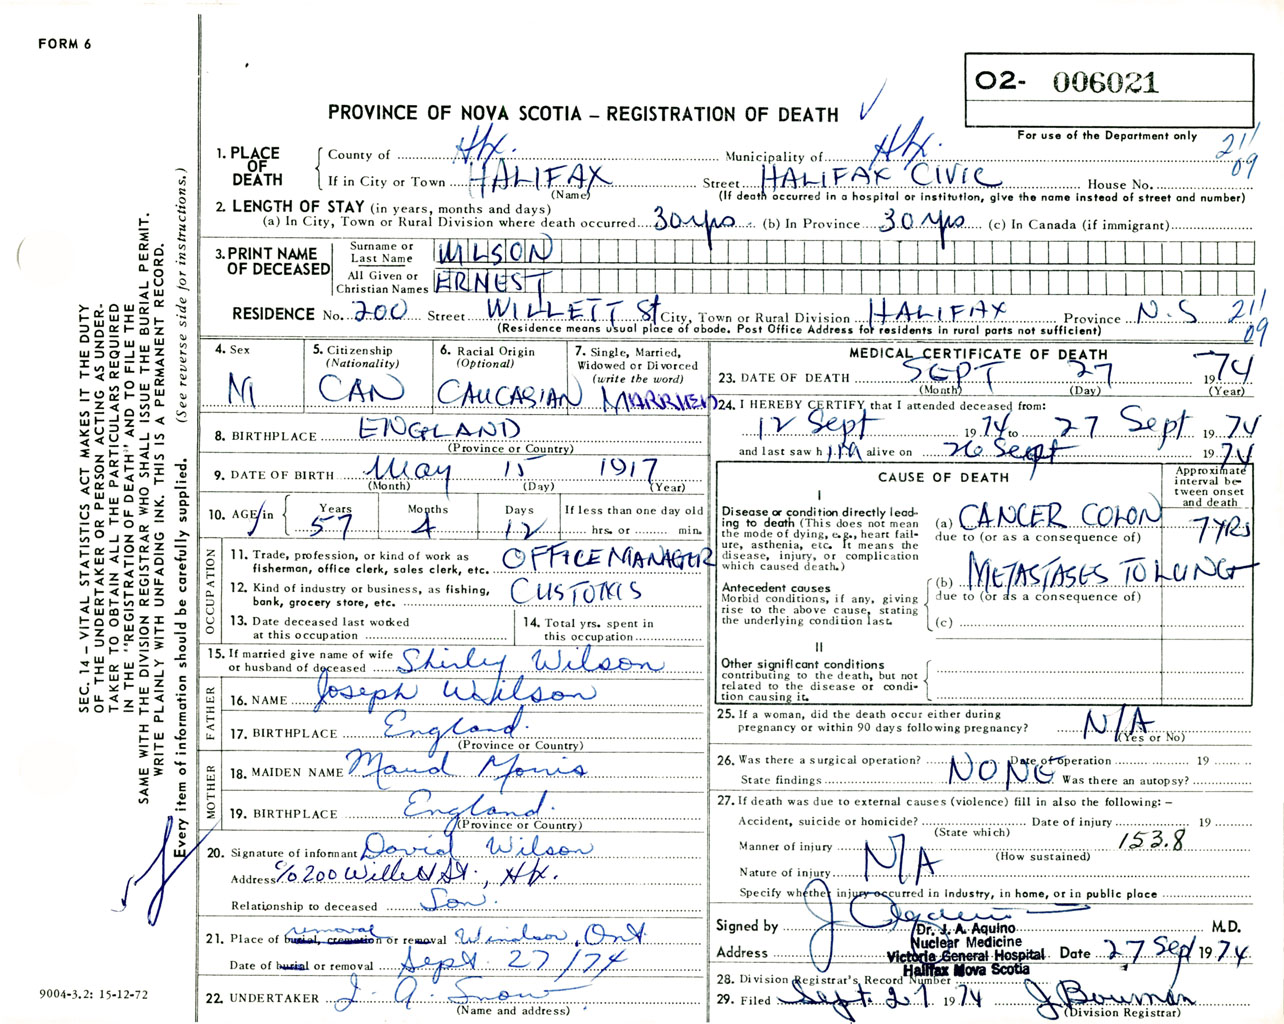 FORM 6
O2- 006021
PROVINCE OF NOVA SCOTIA – REGISTRATION OF DEATH
For use of the Department only
211
09
1. PLACE OF DEATH
County of Hfx. Municipality of Hfx.
If in City or Town HALIFAX Street HALIFAX CIVIC House No.
(Name) (If death occurred in a hospital or institution, give the name instead of street and number)
2. LENGTH OF STAY (in years, months and days)
(a) In City, Town or Rural Division where death occurred 30 yrs (b) In Province 30 yrs (c) In Canada (if immigrant)
3. PRINT NAME OF DECEASED
Surname or Last Name WILSON
All Given or Christian Names ERNEST
RESIDENCE No. 200 Street WILLETT St City, Town or Rural Division HALIFAX Province N.S 211
09
(Residence means usual place of abode. Post Office Address for residents in rural parts not sufficient)
4. Sex
M
5. Citizenship
(Nationality)
CAN
6. Racial Origin
(Optional)
CAUCASIAN
7. Single, Married,
Widowed or Divorced
(write the word)
MARRIED
8. BIRTHPLACE ENGLAND
(Province or Country)
9. DATE OF BIRTH May 15 1917
(Month) (Day) (Year)
10. AGE in Years Months Days If less than one day old
57 4 12 hrs. or min.
OCCUPATION
11. Trade, profession, or kind of work as
fisherman, office clerk, sales clerk, etc. OFFICE MANAGER
12. Kind of industry or business, as fishing,
bank, grocery store, etc. CUSTOMS
13. Date deceased last worked
at this occupation
14. Total yrs. spent in
this occupation
15. If married give name of wife
or husband of deceased Shirley Wilson
FATHER
16. NAME Joseph Wilson
17. BIRTHPLACE England.
(Province or Country)
MOTHER
18. MAIDEN NAME Maud Morris
19. BIRTHPLACE England.
(Province or Country)
20. Signature of informant David Wilson
Address c/o 200 Willett St., Hfx.
Relationship to deceased Son.
21. Place of burial, cremation or removal removal Windsor, Ont.
Date of burial or removal Sept. 27/74
22. UNDERTAKER J. A. Snow
(Name and address)
MEDICAL CERTIFICATE OF DEATH
23. DATE OF DEATH SEPT 27 1974
(Month) (Day) (Year)
24. I HEREBY CERTIFY that I attended deceased from:
12 Sept 1974 to 27 Sept 1974
and last saw him alive on 26 Sept 1974
CAUSE OF DEATH
Approximate
interval be-
tween onset
and death
I
Disease or condition directly lead-
ing to death (This does not mean
the mode of dying, e.g., heart fail-
ure, asthenia, etc. It means the
disease, injury, or complication
which caused death.)
(a) CANCER COLON 7 YRS
due to (or as a consequence of)
Antecedent causes
Morbid conditions, if any, giving
rise to the above cause, stating
the underlying condition last.
(b) METASTASES TO LUNG
due to (or as a consequence of)
(c)
II
Other significant conditions
contributing to the death, but not
related to the disease or condi-
tion causing it.
25. If a woman, did the death occur either during
pregnancy or within 90 days following pregnancy? N/A
(Yes or No)
26. Was there a surgical operation? NONE Date of operation 19
State findings Was there an autopsy?
27. If death was due to external causes (violence) fill in also the following: –
Accident, suicide or homicide? Date of injury 19
(State which)
Manner of injury 153.8
(How sustained)
N/A
Nature of injury
Specify whether injury occurred in industry, in home, or in public place
Signed by J Aquino M.D.
Dr. J. A. Aquino
Nuclear Medicine
Victoria General Hospital
Halifax Nova Scotia
Address Date 27 Sept 1974
28. Division Registrar's Record Number
29. Filed Sept. 27 1974 J Bowman
(Division Registrar)
SEC. 14 – VITAL STATISTICS ACT MAKES IT THE DUTY
OF THE UNDERTAKER OR PERSON ACTING AS UNDER-
TAKER TO OBTAIN ALL THE PARTICULARS REQUIRED
IN THE "REGISTRATION OF DEATH" AND TO FILE THE
SAME WITH THE DIVISION REGISTRAR WHO SHALL ISSUE THE BURIAL PERMIT.
WRITE PLAINLY WITH UNFADING INK. THIS IS A PERMANENT RECORD.
Every item of information should be carefully supplied. (See reverse side for instructions.)
9004-3.2: 15-12-72